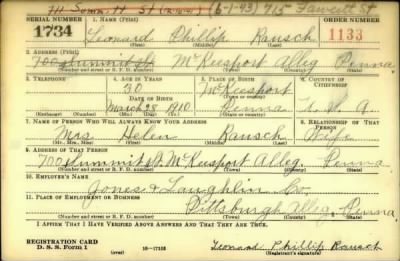 711 Summit St (6-1-43) 715 Fawcett St
SERIAL NUMBER 1. NAME (Print) ORDER NUMBER
1734 Leonard Phillip Rausch 1133
(First) (Middle) (Last)
2. ADDRESS (Print)
700 Summit St. McKeesport Alleg. Penna.
(Number and street or R. F. D. number) (Town) (County) (State)
3. TELEPHONE 4. AGE IN YEARS 5. PLACE OF BIRTH 6. COUNTRY OF CITIZENSHIP
30 McKeesport
DATE OF BIRTH (Town or county)
March 28 1910 Penna U. S. A.
(Exchange) (Number) (Mo.) (Day) (Yr.) (State or country)
7. NAME OF PERSON WHO WILL ALWAYS KNOW YOUR ADDRESS 8. RELATIONSHIP OF THAT PERSON
Mrs. Helen Rausch Wife
(Mr., Mrs., Miss) (First) (Middle) (Last)
9. ADDRESS OF THAT PERSON
700 Summit St. McKeesport Alleg. Penna.
(Number and street or R. F. D. number) (Town) (County) (State)
10. EMPLOYER'S NAME
Jones & Laughlin Co.
11. PLACE OF EMPLOYMENT OR BUSINESS
Pittsburgh Alleg. Penna.
(Number and street or R. F. D. number) (Town) (County) (State)
I AFFIRM THAT I HAVE VERIFIED ABOVE ANSWERS AND THAT THEY ARE TRUE.
REGISTRATION CARD
D. S. S. Form 1 (over) 16-17105 Leonard Phillip Rausch
(Registrant's signature)